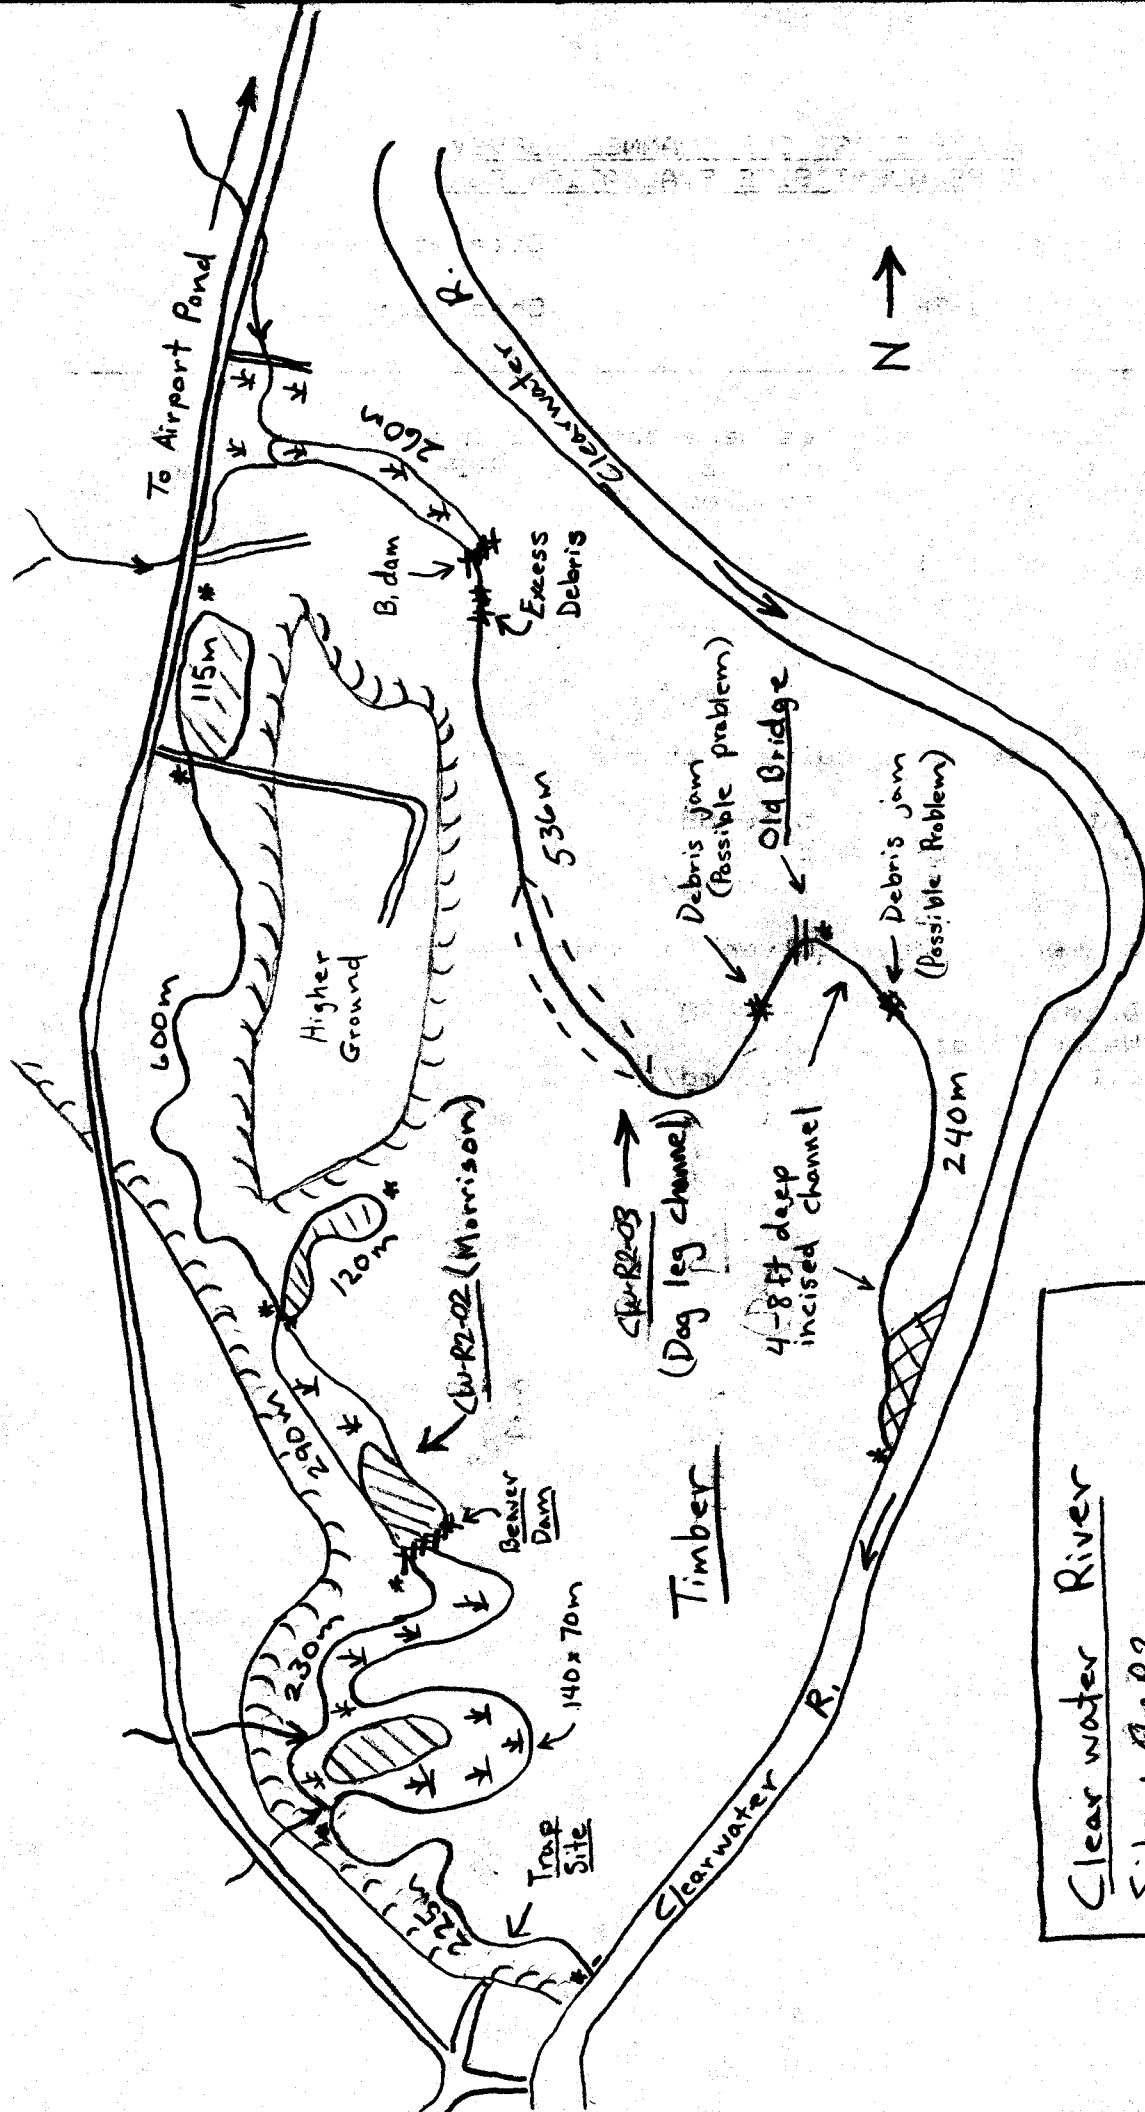 To Airport Pond
R.
Clearwater
N
260m
B. dam
Excess
Debris
115m
536m
Debris jam
(Possible problem)
Old Bridge
Debris jam
(Possible Problem)
600m
Higher
Ground
CW-R2-03
(Dog leg channel)
4-8 ft deep
incised channel
240m
120m
CW-R2-02 (Morrison)
290m
Beaver
Dam
Timber
230m
140 x 70m
Trap
Site
225m
Clearwater
R.
Clearwater River